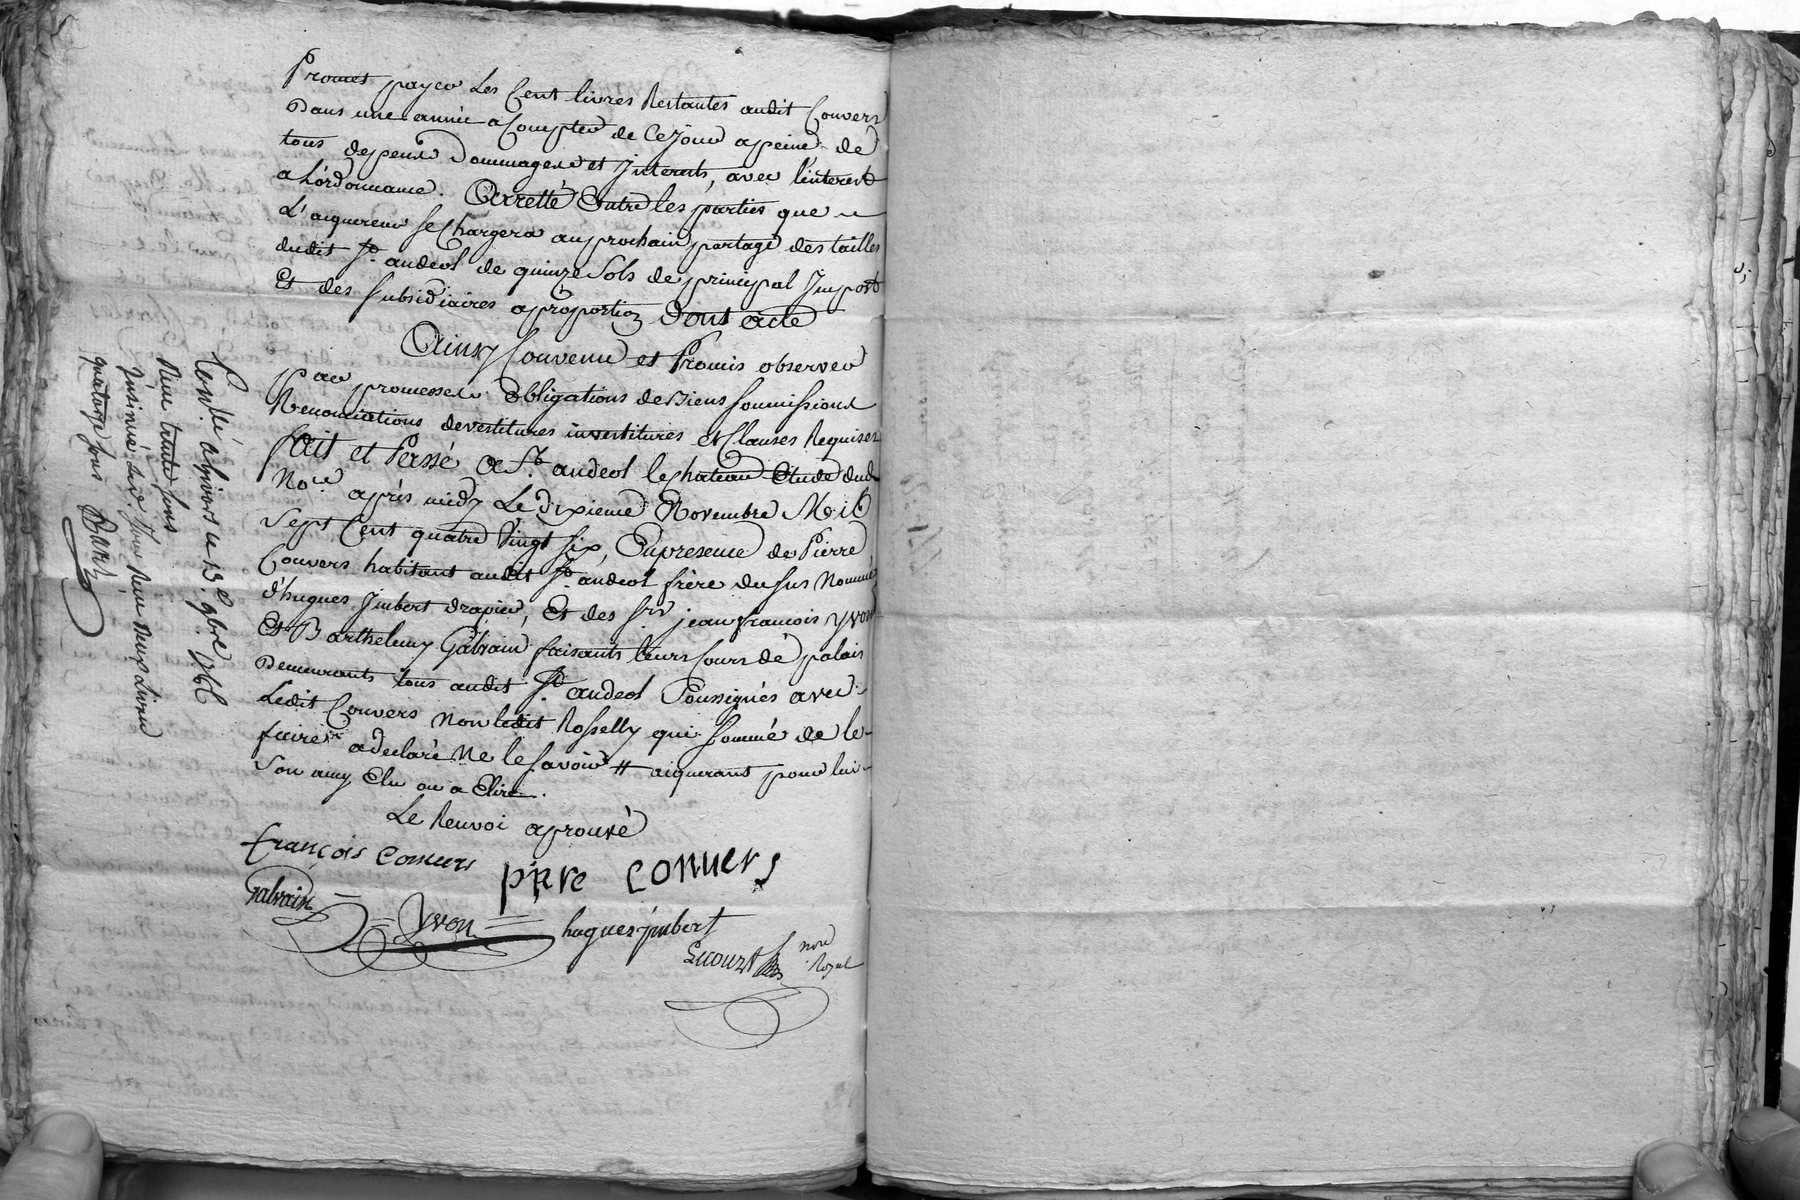 Promet payer les Cent livres Restantes audit Couvers
Dans une année a Compter de Ce jour apeine de
tous depens Dommages et Interets, avec l'interest
a l'ordonnance. Arretté Entre les parties que
L'aquereur se Chargera au prochain partage des tailles
dudit St. andeol de quinze sols de principal Import
Et des subsidiaires aproportion Dont acte
Ainsy Convenu et Promis observer
Par promesses obligations de Biens soumissions
Renonciations devestitures investitures et Clauses Requises
fait et Passé a St. andeol le chateau Etude dud
Nore. après midy Le Dixieme Novembre Mil
Sept Cent quatre Vingt six, En presence de Pierre
Couvers habitant audit St. andeol frère du sus Nommé
d'hugues Imbert drapier, Et des srs jean francois yvon
Et Barthelemy Galvain faisants leurs Cours de palais
Demeurants tous audit St. andeol Soussignés avec
Ledit Couvers Non ledit Rosselly qui sommé de le
faire a declaré Ne le savoir # aiquerant pour lui
Son amy Elu ou a Elire.
Le Renvoi aprouvé
françois couvers
piere couvers
Galvain
Yvon
hugues jmbert
nore
Royal
Conllé a 13e 9bre 1786
Reçu trente sous
Insinué led. Jour Reçu deux Livres
quatorze sous